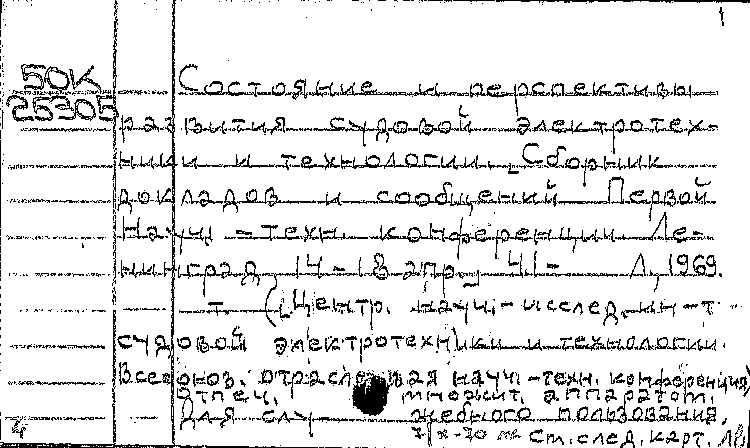 1
50К
25305
Состояние и перспективы
развития судовой электротех-
ники и технологии. Сборник
докладов и сообщений Первой
Науч.-техн. конференции Ле-
нинград, 14-18 апр., Ч.1- Л, 1969.
т. (Центр. науч.-исслед. ин-т
судовой электротехники и технологии.
Всесоюзн. отраслевая науч.-техн. конференция)
Отпеч. множит. аппаратом.
Для служебного пользования.
См. след. карт.